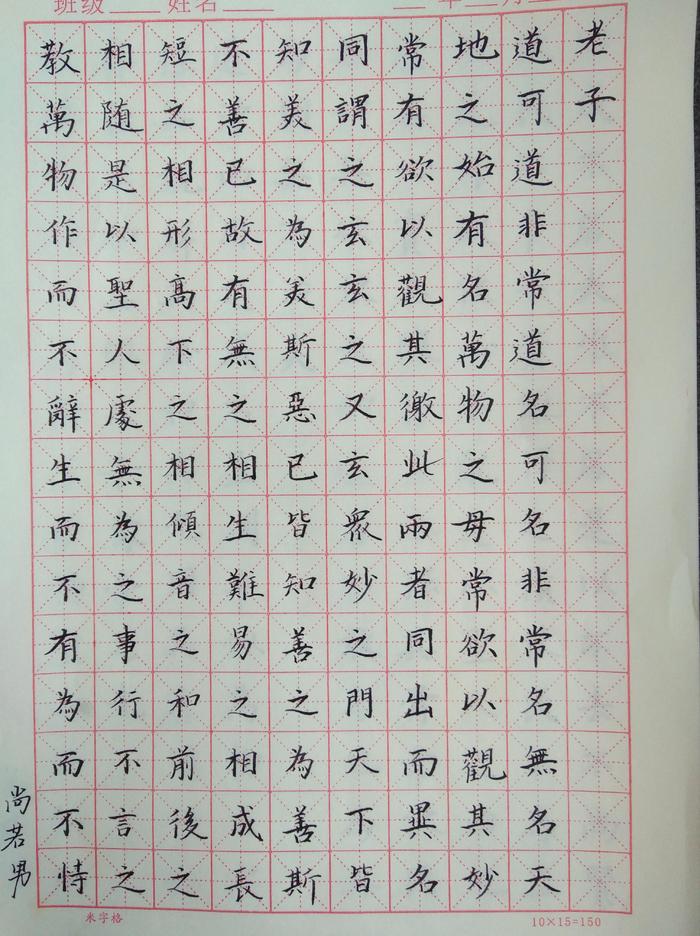 班级 姓名 年 月
老子
道可道非常道名可名非常名無名天
地之始有名萬物之母常欲以觀其妙
常有欲以觀其徼此兩者同出而異名
同謂之玄玄之又玄衆妙之門天下皆
知美之為美斯惡已皆知善之為善斯
不善已故有無之相生難易之相成長
短之相形高下之相傾音之和前後之
相随是以聖人處無為之事行不言之
教萬物作而不辭生而不有為而不恃
尚若男
米字格
10×15=150